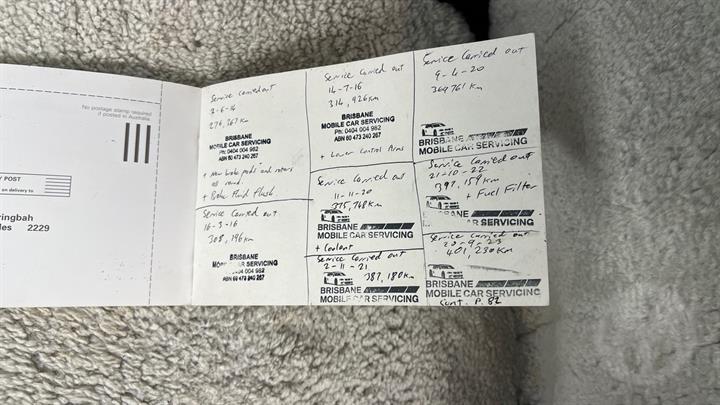 No postage stamp required
if posted in Australia
Y POST
on delivery to
ringbah
les 2229
Service carried out
3-6-14
276,767 km
BRISBANE
MOBILE CAR SERVICING
Ph: 0404 004 982
ABN 60 473 240 267
+ New brake pads and rotors
all round.
+ Brake Fluid Flush.
Service Carried out
16-3-16
308,196 km
BRISBANE
MOBILE CAR SERVICING
0404 004 982
ABN 60 473 240 267
Service Carried out
14-7-16
314,926 km
BRISBANE
MOBILE CAR SERVICING
Ph: 0404 004 982
ABN 60 473 240 267
+ Lower Control Arms
Service Carried out
11-11-20
375,748 km
BRISBANE
MOBILE CAR SERVICING
+ Coolant
Service Carried out
2-11-21
387,180 km
BRISBANE
MOBILE CAR SERVICING
Service Carried out
9-4-20
369761 km
BRISBANE
MOBILE CAR SERVICING
Service Carried out
21-10-22
397,159 km
+ Fuel Filter
BRISBANE
MOBILE CAR SERVICING
Service Carried out
20-9-23
401,230 km
BRISBANE
MOBILE CAR SERVICING
Cont. P. 82